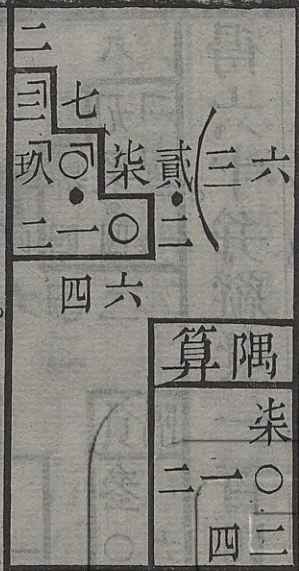 二
三七
玖〇柒貳三六
二一〇二
四六
隅算
柒
二一〇
四二